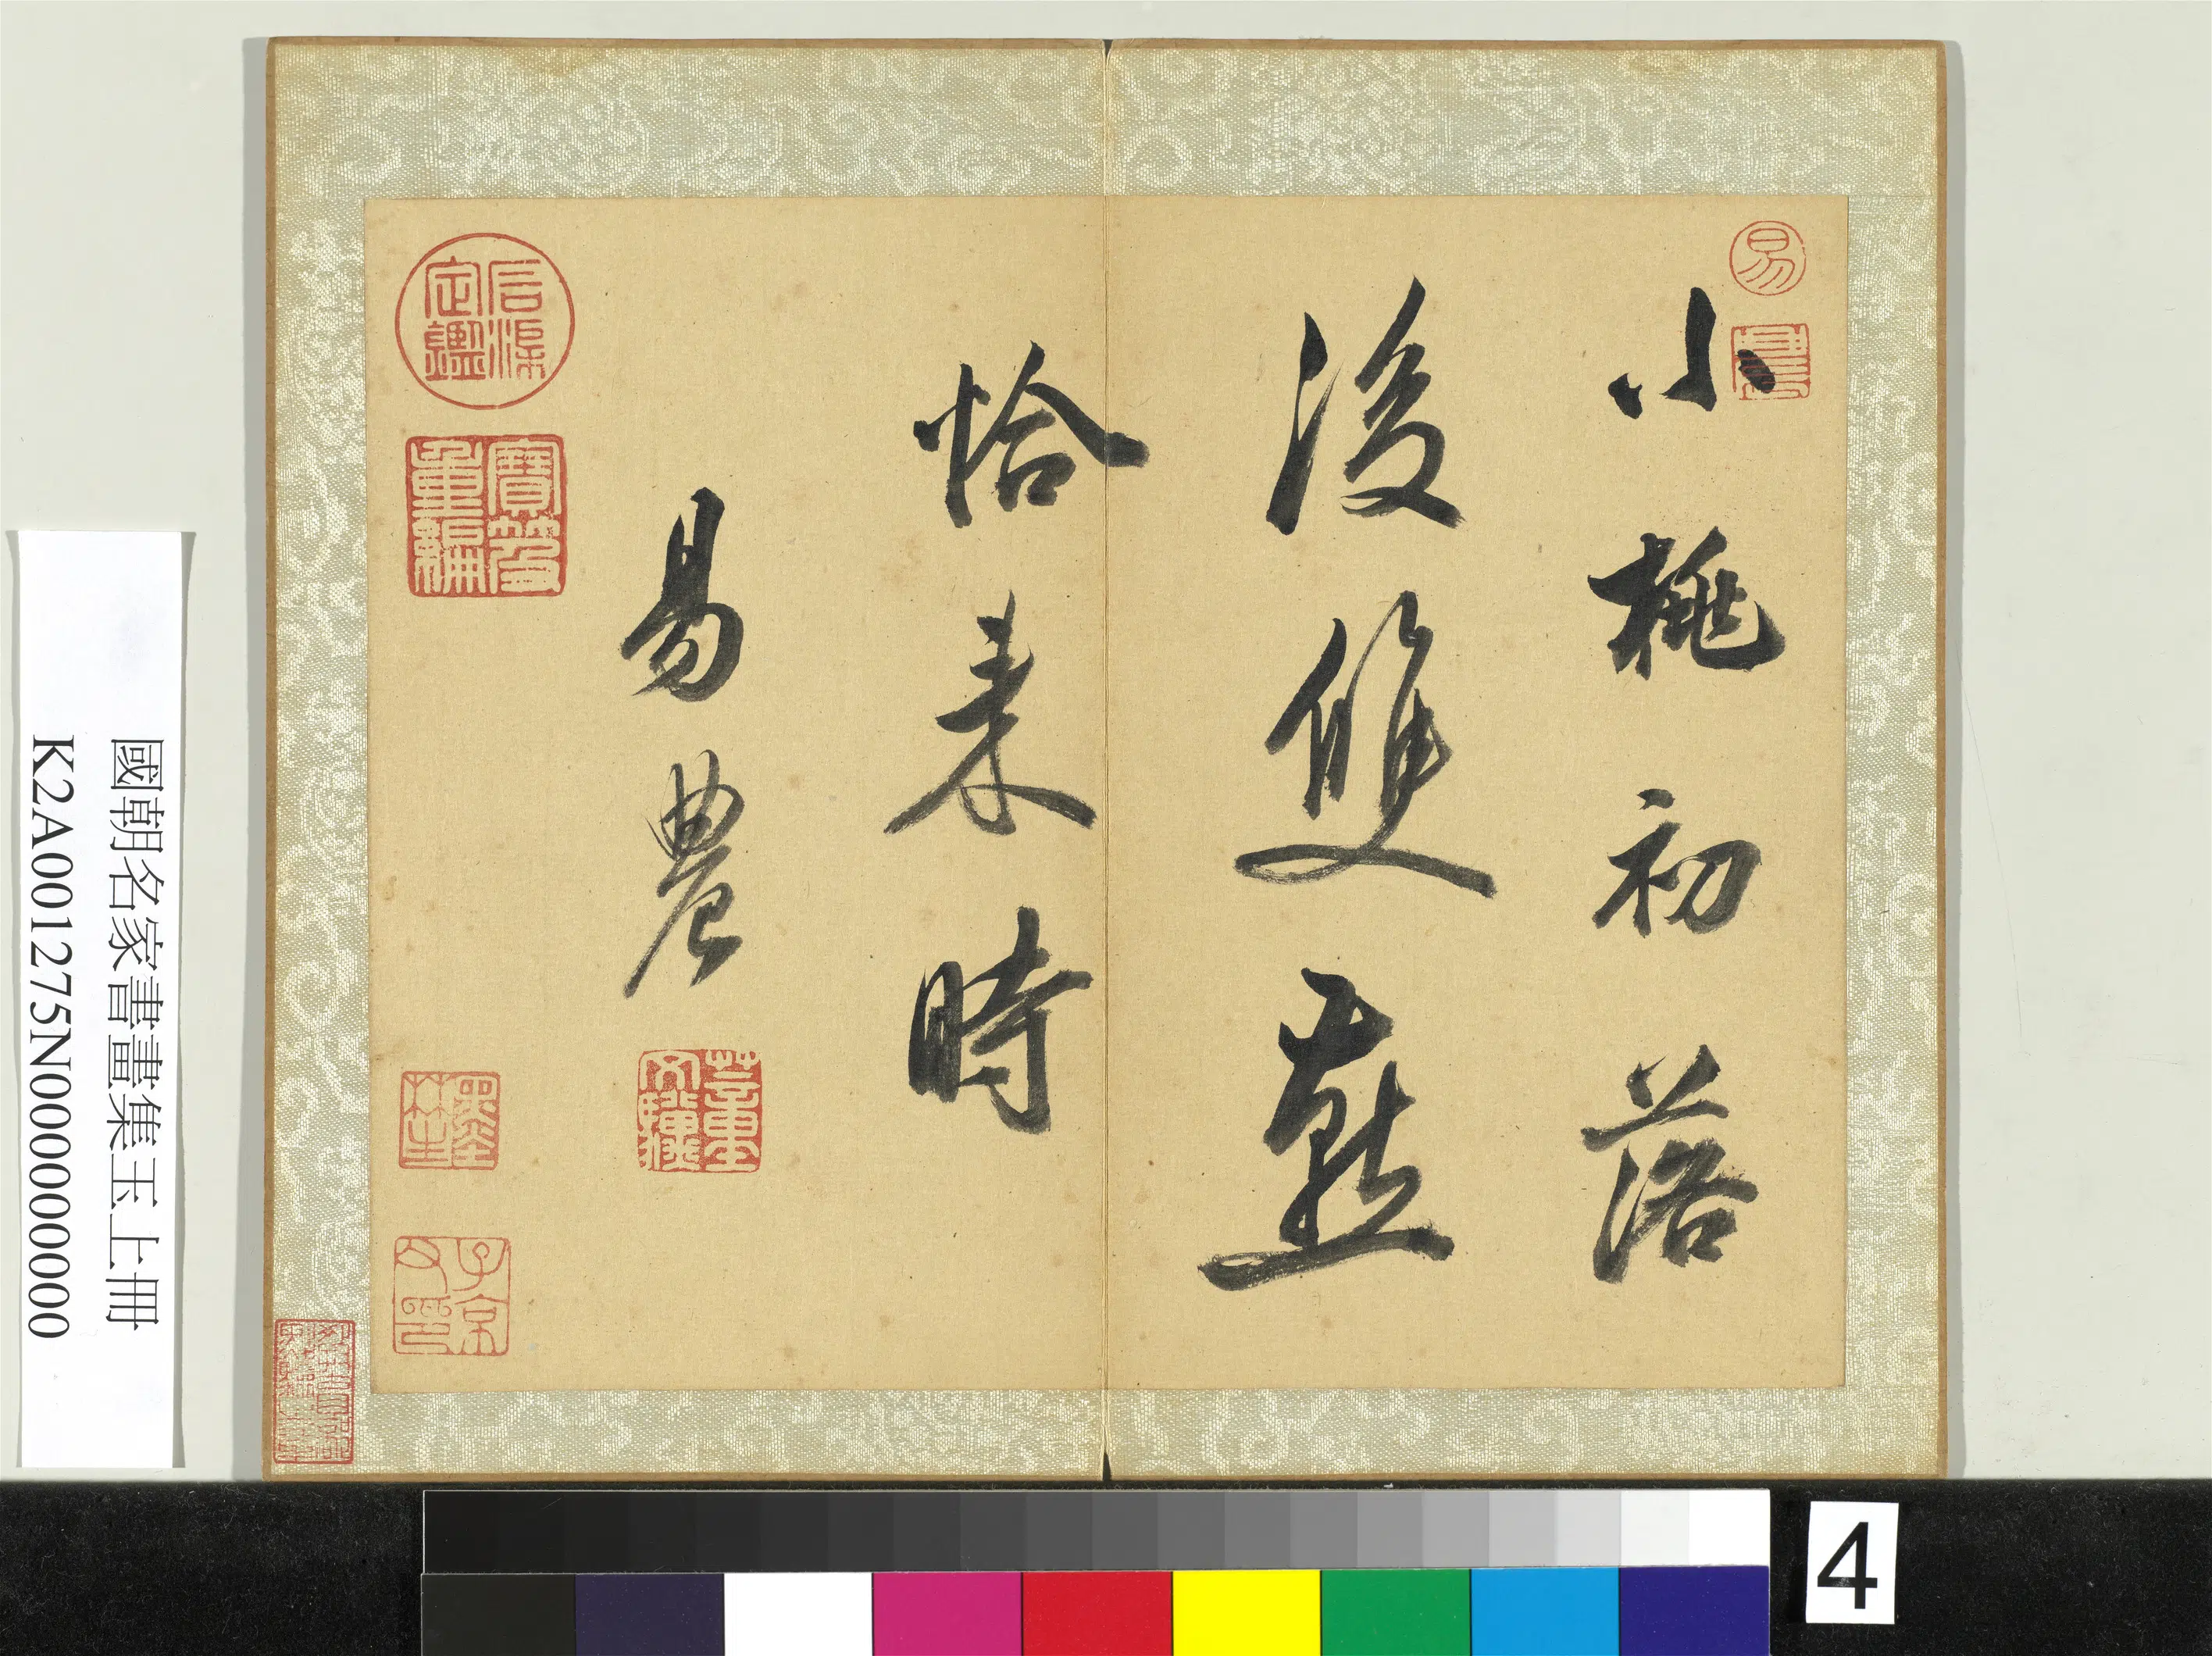 小桃初落
後雙燕
恰来時
易農
易
石渠
定鑑
寶笈
重編
子京
父印
墨林
國朝名家書畫集玉上冊
K2A001275N000000000
4